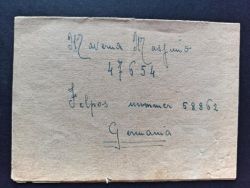 Maverna Masfinio
47654
Felpos nummer 58862
Germania